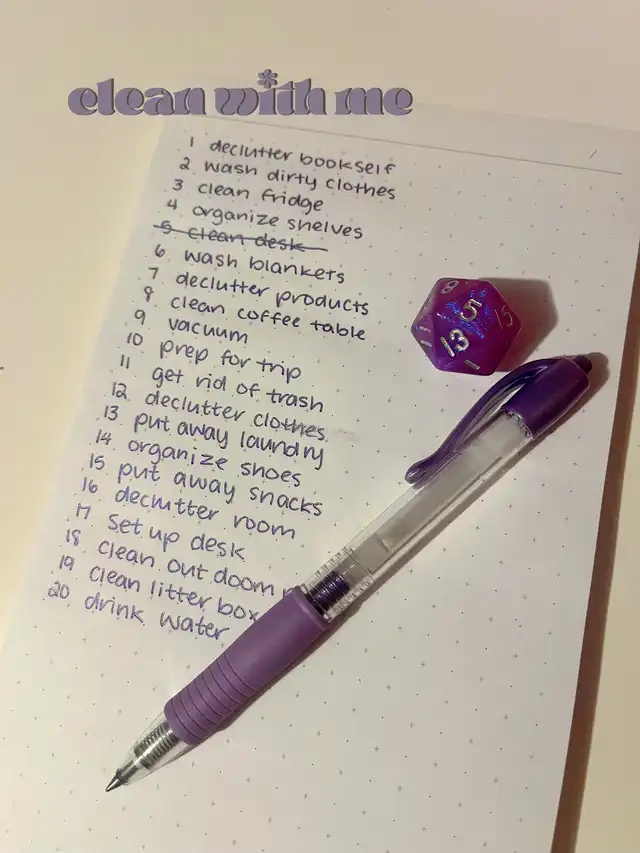 clean with me
1 declutter bookself
2 wash dirty clothes
3 clean fridge
4 organize shelves
5 clean desk
6 wash blankets
7 declutter products
8 clean coffee table
9 vacuum
10 prep for trip
11 get rid of trash
12 declutter clothes
13 put away laundry
14 organize shoes
15 put away snacks
16 declutter room
17 set up desk
18 clean out doom
19 clean litter box
20 drink water
8
5
15
13